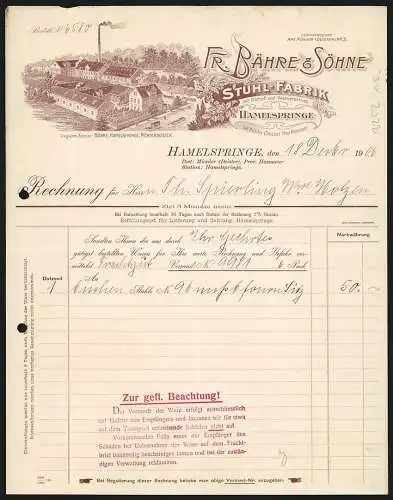 Bestell. № 6680
Fernsprecher:
Amt Münder (Deister) № 3.
FR. BÄHRE & SÖHNE
STUHL-FABRIK
HAMELSPRINGE
HAMELSPRINGE, den 18 Dezbr 1906
Post: Münder (Deister), Prov. Hannover
Station: Hamelspringe.
Rechnung für Herrn Th. Spierling Wwe Holzen
Ziel 3 Monate netto
Bei Bezahlung innerhalb 30 Tagen nach Datum der Rechnung 2% Sconto.
Erfüllungsort für Lieferung und Zahlung Hamelspringe.
Sandten Ihnen die uns durch Ihr Geehrtes
gütigst bestellten Waren für Ihre werte Rechnung und Gefahr ver-
mittelst Frachtgut Versand № 4981 6 Pack
Markwährung
Dutzend
An
1 buchen Stühle № 96 nussb fourn Sitz 50.-
Zur gefl. Beachtung!
Der Versandt der Ware erfolgt ausschliesslich
auf Gefahr des Empfängers und kommen wir für
auf dem Transport entstehende Schäden nicht auf.
Vorkommenden Falls muss der Empfänger den
Schaden bei Uebernahme der Ware auf dem Fracht-
brief bahnseitig bescheinigen lassen und bei der zustän-
digen Verwaltung reklamiren.
Bei Regulierung dieser Rechnung beliebe man obige Versand-Nr. anzugeben.